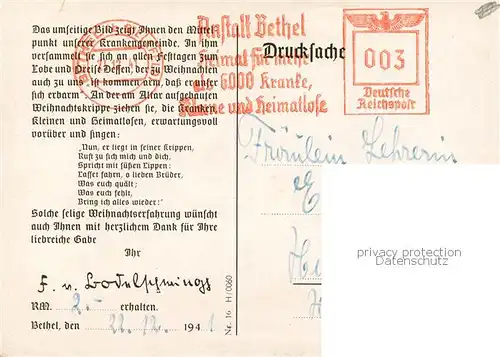 Das umseitige Bild zeigt Ihnen den Mittel-
punkt unserer Krankengemeinde. In ihm
versammelt sie sich an allen Festtagen zum
Lobe und Preise Dessen, der zu Weihnachten
auch zu uns ist kommen arm, daß er unser
sich erbarm'. An der am Altar aufgebauten
Weihnachtskrippe ziehen sie, die Kranken,
Kleinen und Heimatlosen, erwartungsvoll
vorüber und singen:
„Nun, er liegt in seiner Krippen,
Ruft zu sich mich und dich,
Spricht mit süßen Lippen:
Lasset fahrn, o lieben Brüder,
Was euch quält;
Was euch fehlt,
Bring ich alles wieder:“
Solche selige Weihnachtserfahrung wünscht
auch Ihnen mit herzlichem Dank für Ihre
liebreiche Gabe
Ihr
F. v. Bodelschwingh
RM. 2.- erhalten.
Bethel, den 22.12. 1941
Nr. 16 H/0060
Anstalt Bethel
Heimat für mehr
als 6000 Kranke,
Kleine und Heimatlose
Drucksache
003
Deutsche
Reichspost
Fräulein Lehrerin
privacy protection
Datenschutz